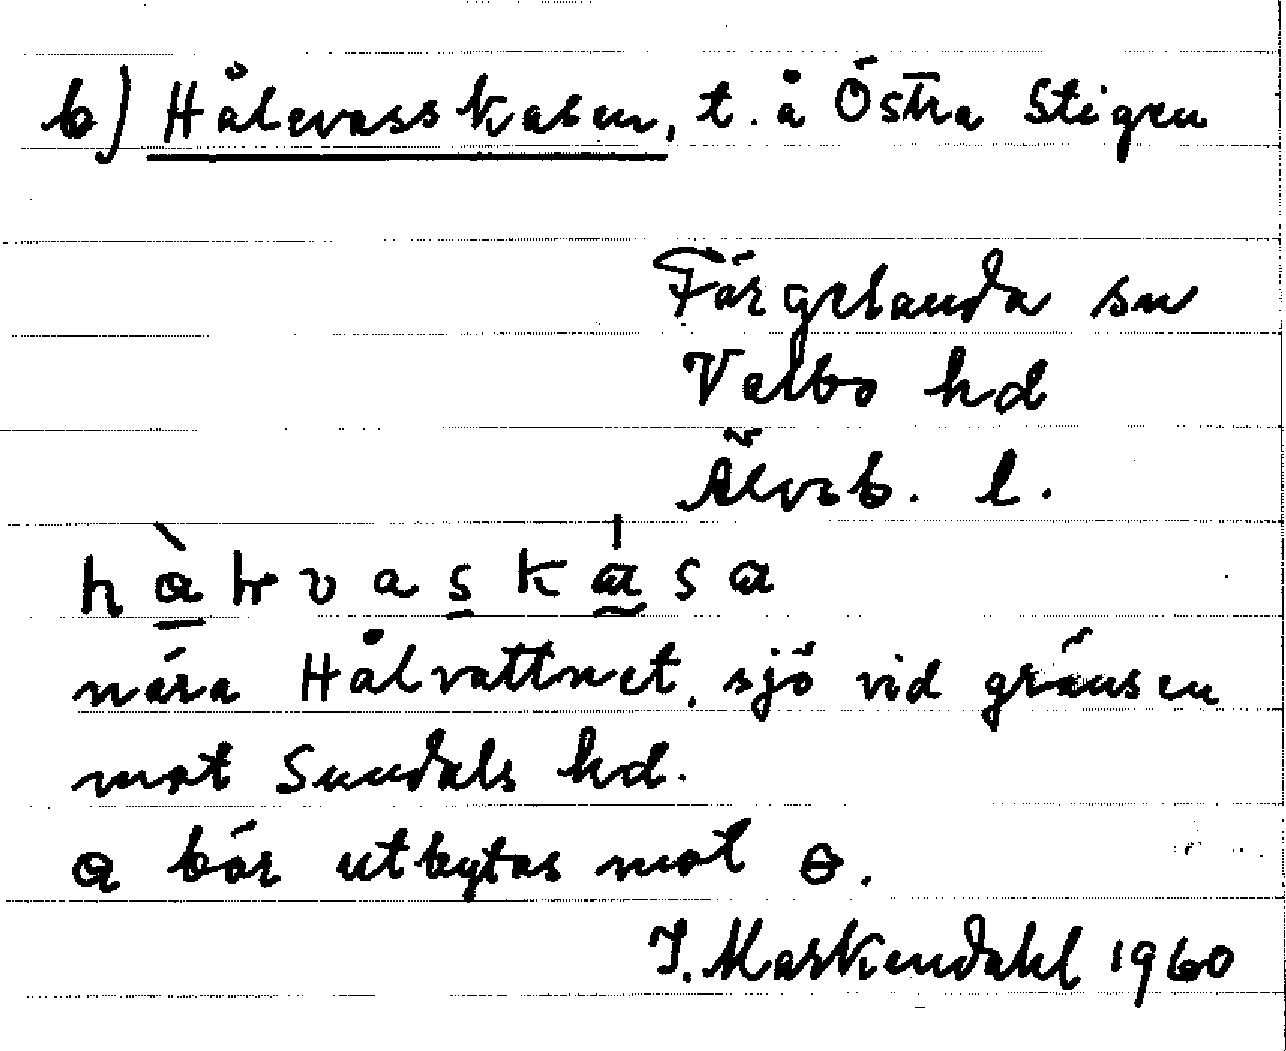 b) Hålevasskasen, t. å Östra Stigen
Färgelanda sn
Valbo hd
Älvsb. l.
nära Hålvattnet, sjö vid gränsen
mot Sundals hd.
ɷ bör utbytas mot ɵ.
J. Markendahl 1960